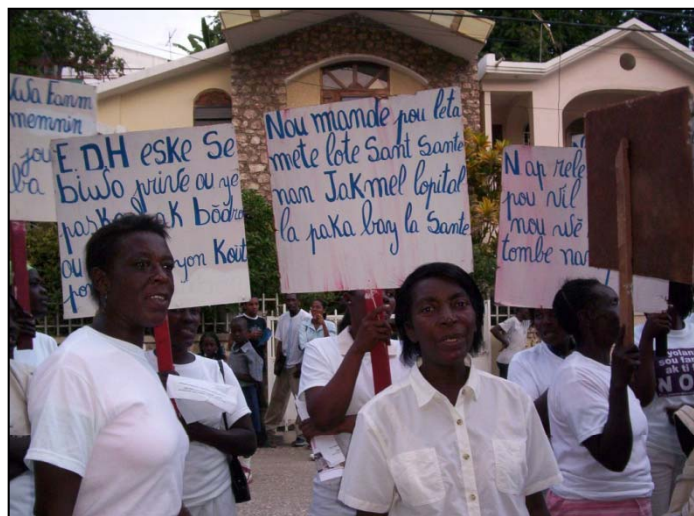 Wa Fanm
memnin
jou
ba
E.D.H eske Se
biwo prive ou ye
ou yon Kout
Nou mande pou leta
mete lote Sant Sante
nan Jakmel lopital
la paka bay la Sante
Nap rele
pou vil
nou wè
tombe nan
sou fan
ak ti
NO